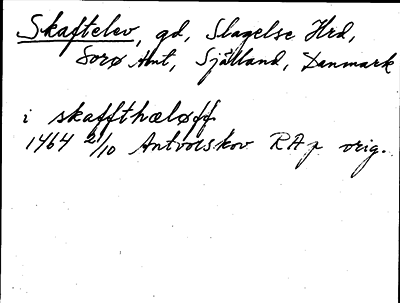 Skaftelev, gd, Slagelse Hrd,
Sorø Amt, Sjælland, Danmark
i skaffthæløff
1464 2/10 Antvorskov RA p orig.